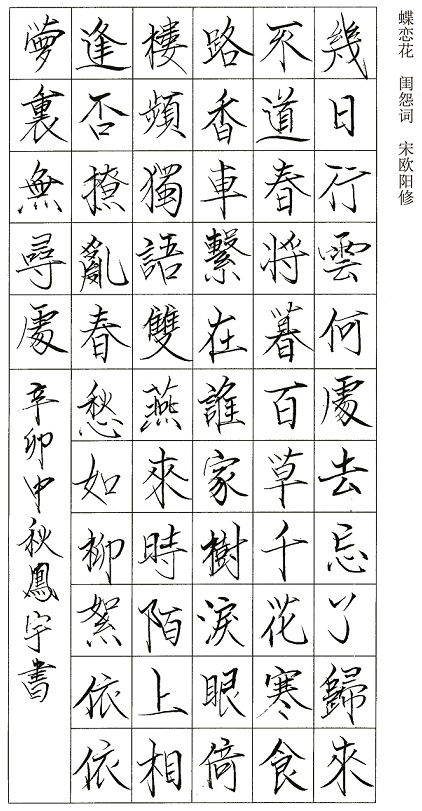 蝶恋花 闺怨词 宋欧阳修
幾日行雲何處去忘了歸來
不道春将暮百草千花寒食
路香車繫在誰家樹淚眼倚
樓頻獨語雙燕來時陌上相
逢否撩亂春愁如柳絮依依
夢裏無尋處
辛卯中秋鳳宇書